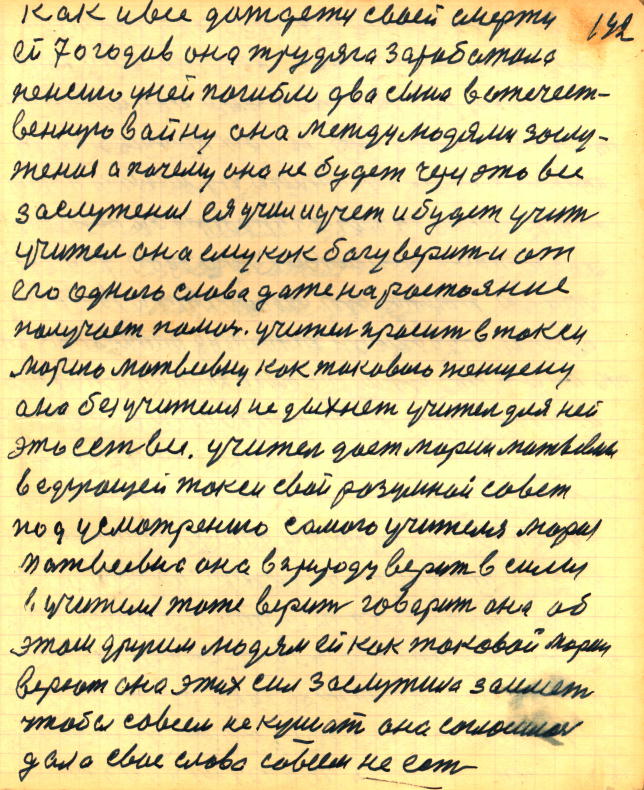 как и все дождети своей смерти 192
ей 70 годов она трудяга заработала
пенсию у ней погибли два сына в отечест-
венную вайну она между людями заслу-
женая а почему она не будет через это все
заслуженая ея учил и учет и будет учит
учител она ему как богу верит и от
его одного слова даже на ростояние
получает помоч. учител просит в такси
марию матвеевну как таковаю женщену
она без учителя не дыхнет учител для ней
это ест все. учител дает марии матвевни
в едущей такси свой розумной совет
под усмотрению самого учителя мария
матвеевна она в природу верит в силы
в учителя тоже верит говорит она об
этом другим людям ей как таковой марии
верют она этих сил заслужила заимет
чтобы совсем не кушат она
дала свое слово совсем не ест